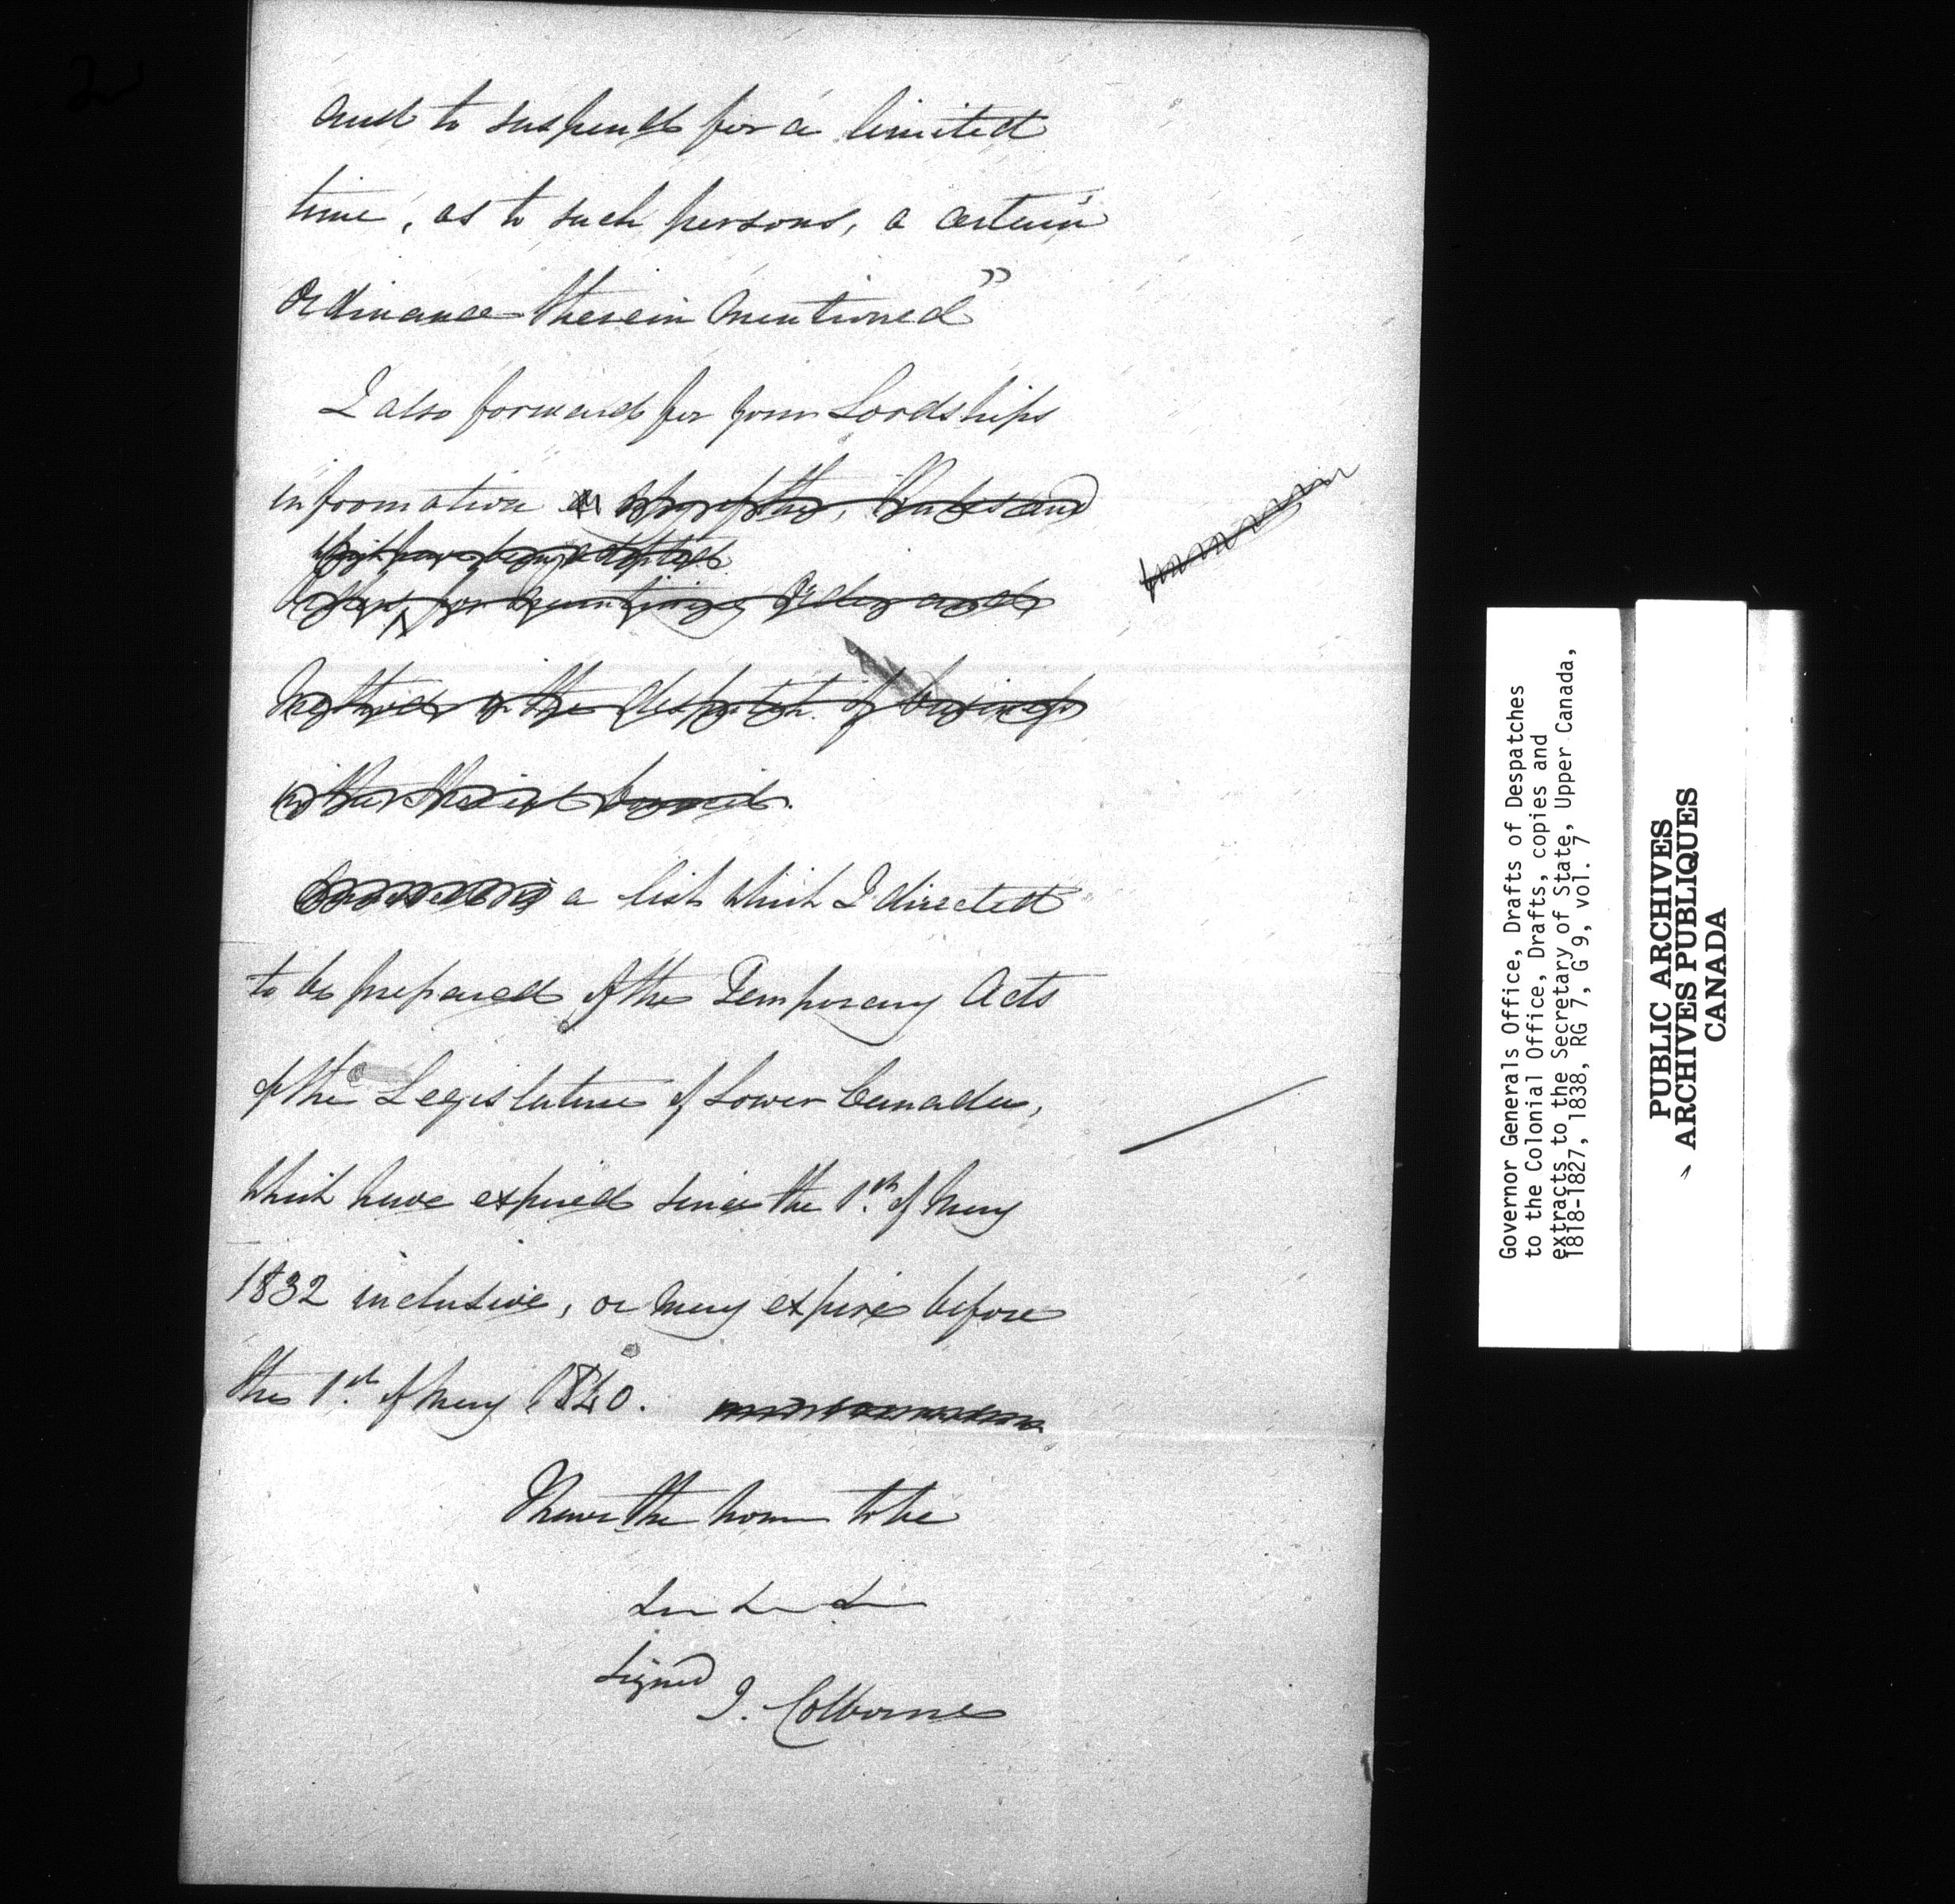 and to suspend for a limited
time, as to such persons, a certain
Ordinance therein mentioned"
I also forward for your Lordships
information a copy of the Rules and
which have been adopted
Orders for
Method in the despatch of business
a list which I directed
to be prepared of the Temporary Acts
of the Legislature of Lower Canada,
which have expired since the 1st of May
1832 inclusive, or may expire before
the 1st of May 1840.
I have the honor to be
Signed
J. Colborne
Governor Generals Office, Drafts of Despatches
to the Colonial Office, Drafts, copies and
extracts to the Secretary of State, Upper Canada,
1818-1827, 1838, RG 7, G 9, vol. 7
PUBLIC ARCHIVES
ARCHIVES PUBLIQUES
CANADA